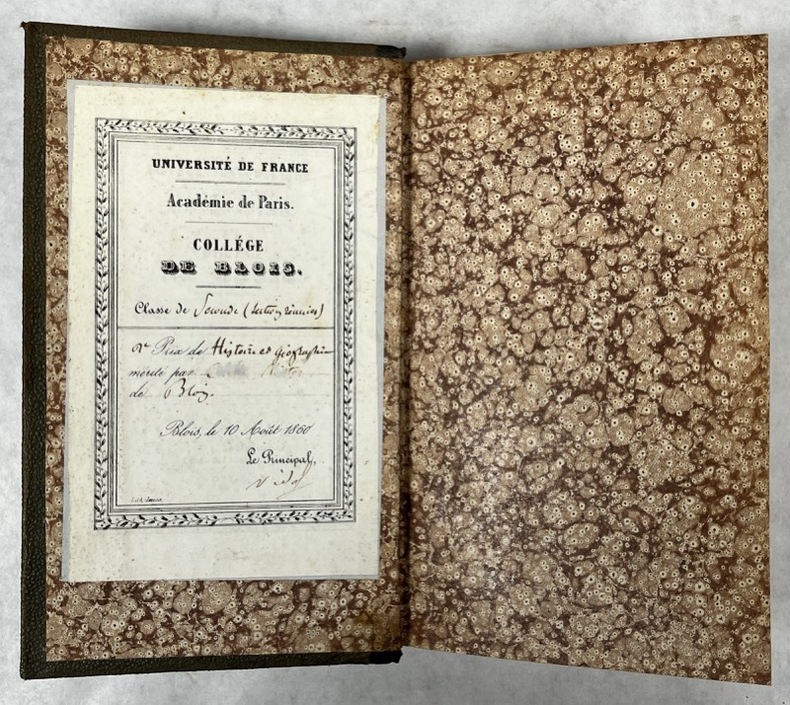 UNIVERSITÉ DE FRANCE
Académie de Paris.
COLLÉGE
DE BLOIS.
Classe de Seconde (Sections réunies)
Prix de Histoire et Géographie
mérité par
de Blois.
Blois, le 10 Août 1860
Le Principal,